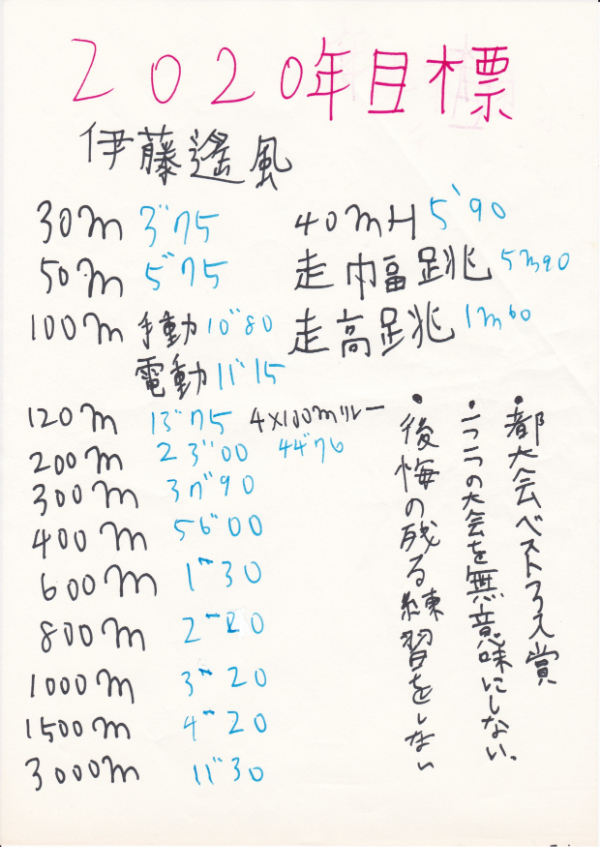 2020年目標
伊藤遙風
30m 3"75
50m 5"75
100m 手動 10"80
電動 11"15
120m 13"75
200m 23"00
300m 37"90
400m 56"00
600m 1"30
800m 2"20
1000m 3"20
1500m 4"20
3000m 11"30
40mH 5"90
走巾福跳 5m90
走高跳 1m60
4×100mリレー
44"76
・都大会ベスト3入賞
・一つ一つの大会を無意味にしない。
・後悔の残る練習をしない